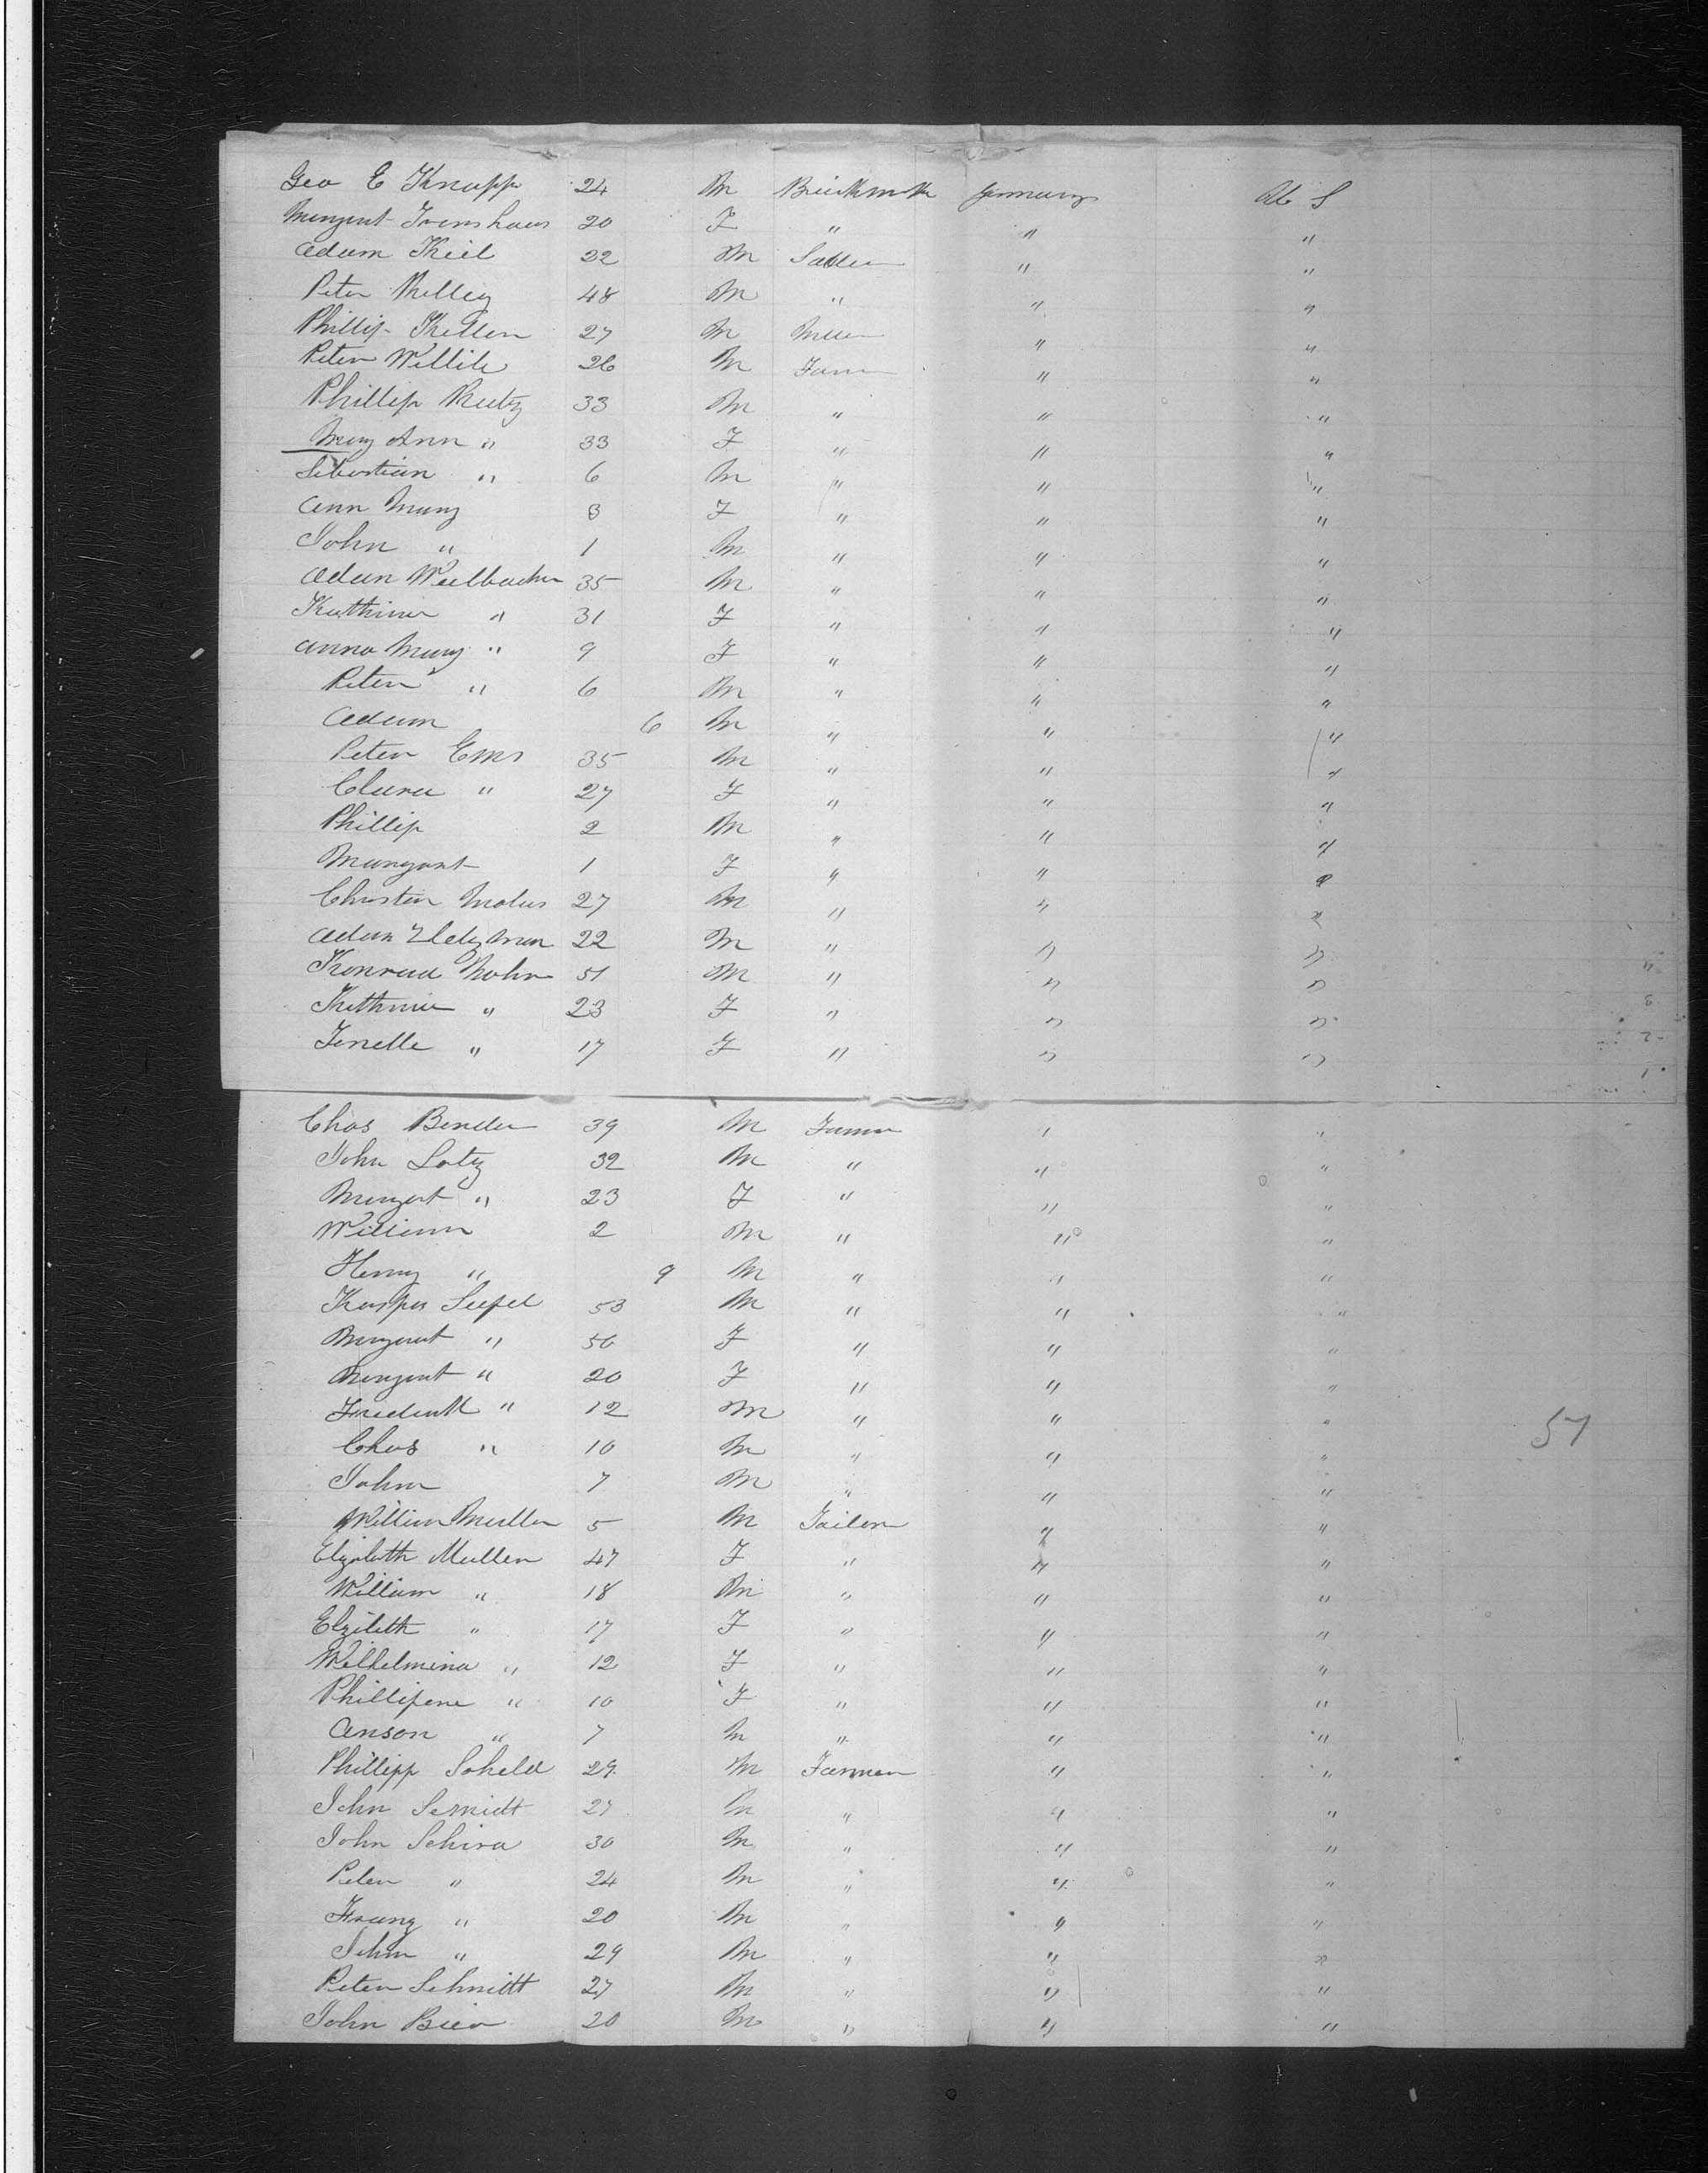 Geo E Knapp 24 M Germany U S
20 F " " "
Adam Keil 22 M " "
Peter 48 M " " "
Phillip Keller 27 M " "
Peter 26 M Farm " "
Phillip 33 M " " "
Mary Ann " 33 F " " "
Sebastian " 6 M " " "
Ann Mary 3 F " " "
John " 1 M " " "
Adam Weilbacher 35 M " " "
Kathrina " 31 F " " "
Anna Mary " 9 F " " "
Peter " 6 M " " "
Adam 6 M " " "
Peter Ems 35 M " " "
Clara " 27 F " " "
Phillip 2 M " " "
Margaret 1 F " " "
Christian 27 M " " "
Adam 22 M " " "
Konrad 51 M " " "
Kathrine " 23 F " " "
" 17 F " " "
Chas Bender 39 M Farmer " "
John Lotz 32 M " " "
Margaret " 23 F " " "
William 2 M " " "
Henry " 9 M " " "
Kasper Seipel 53 M " " "
Margaret " 50 F " " "
Margaret " 20 F " " "
Frederick " 12 M " " "
57
Chas " 10 M " " "
John 7 M " " "
William Muller 5 M Tailor " "
Elizabeth Muller 47 F " " "
William " 18 M " " "
Elzibeth " 17 F " " "
Wilhelmina " 12 F " " "
Phillipene " 10 F " " "
Anson " 7 M " " "
Phillipp Scheld 29 M Farmer " "
John 27 M " " "
John Schira 30 M " " "
Peter " 24 M " " "
Franz " 20 M " " "
John " 29 M " " "
Peter Schmidt 27 M " " "
John 20 M " " "